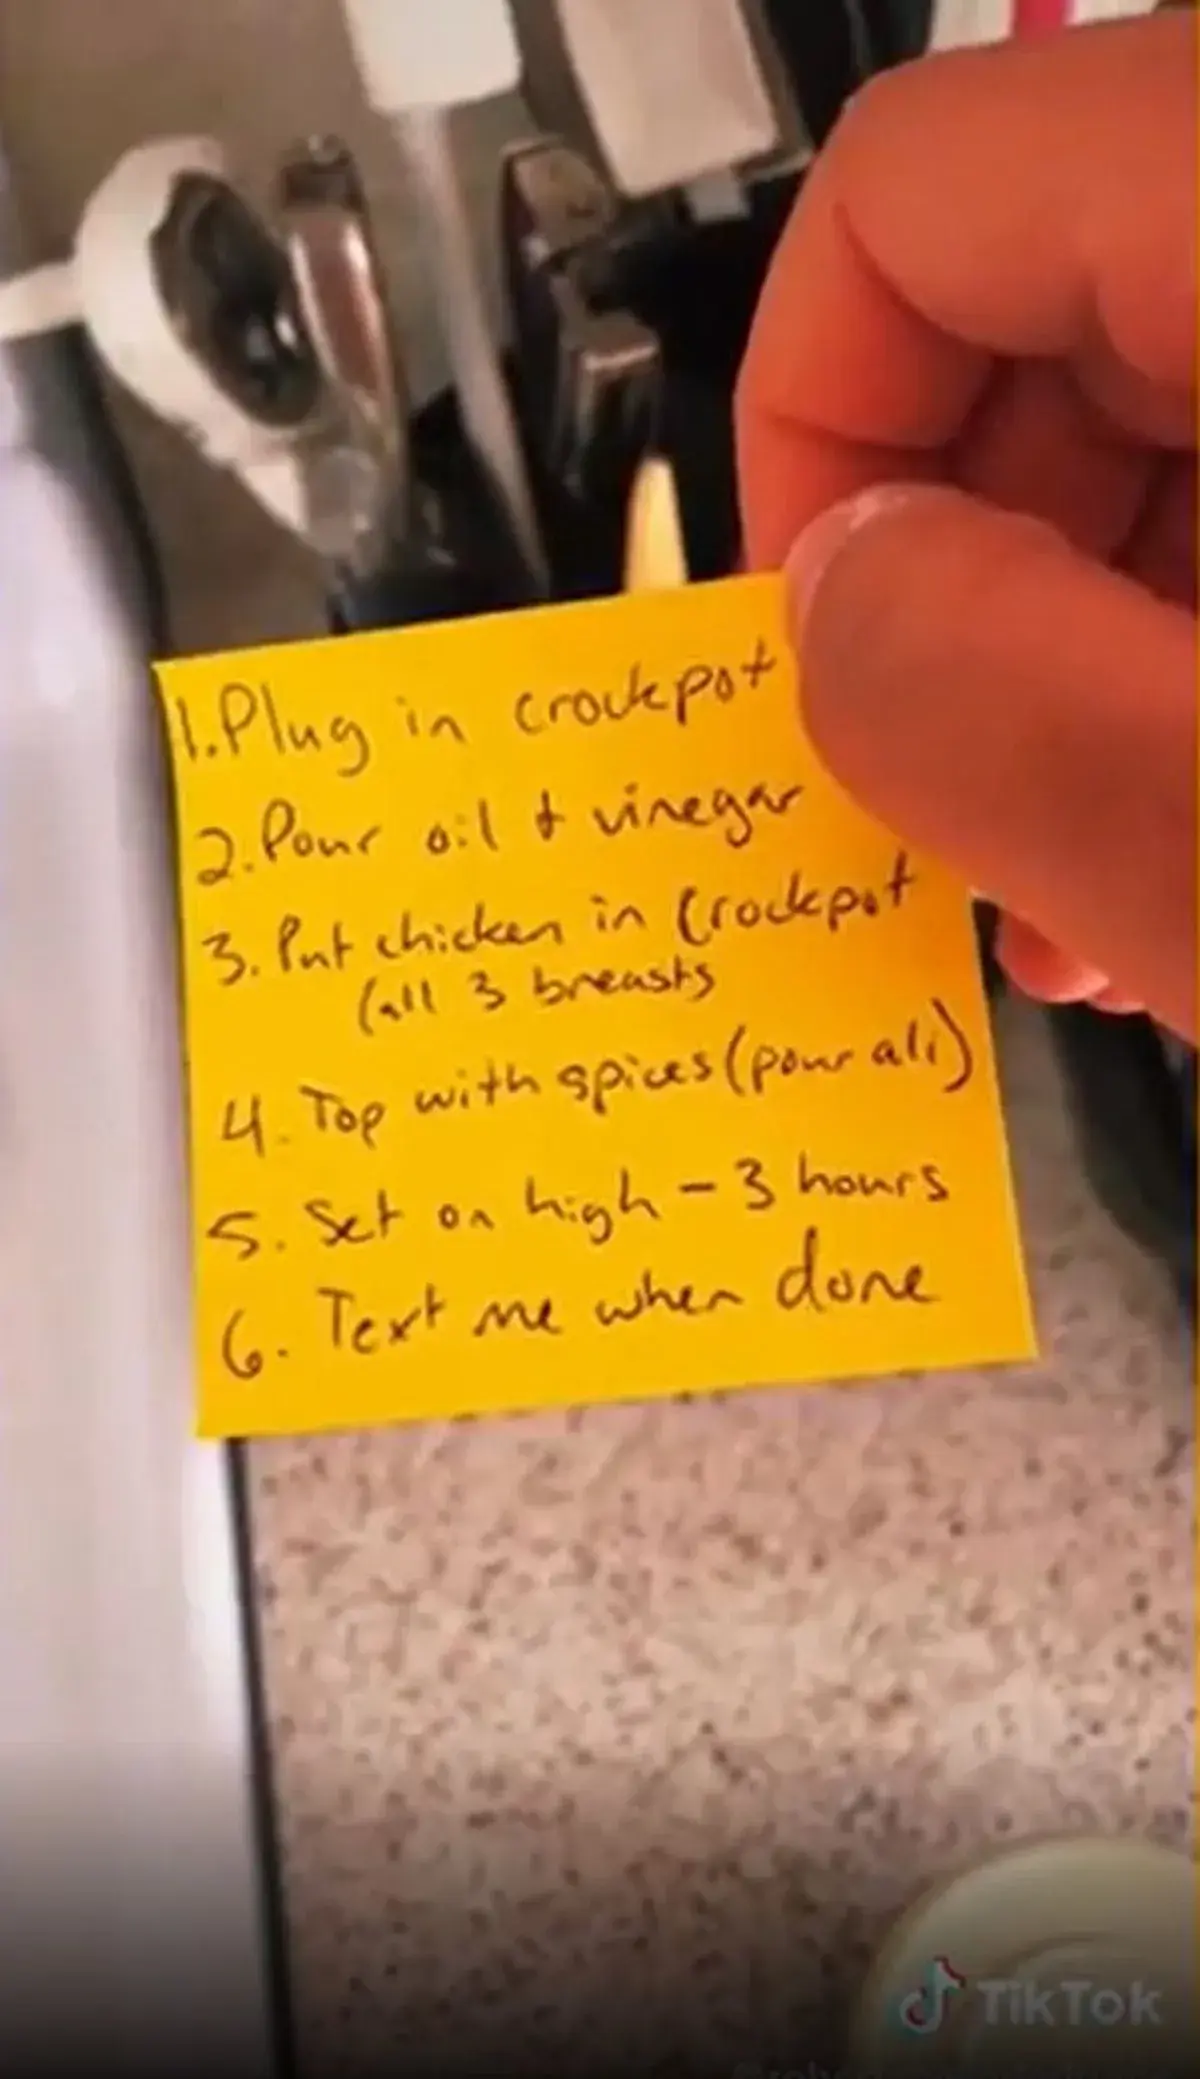 1. Plug in crockpot
2. Pour oil & vinegar
3. Put chicken in Crockpot
(all 3 breasts
4. Top with spices (pour all)
5. Set on high - 3 hours
6. Text me when done
TikTok